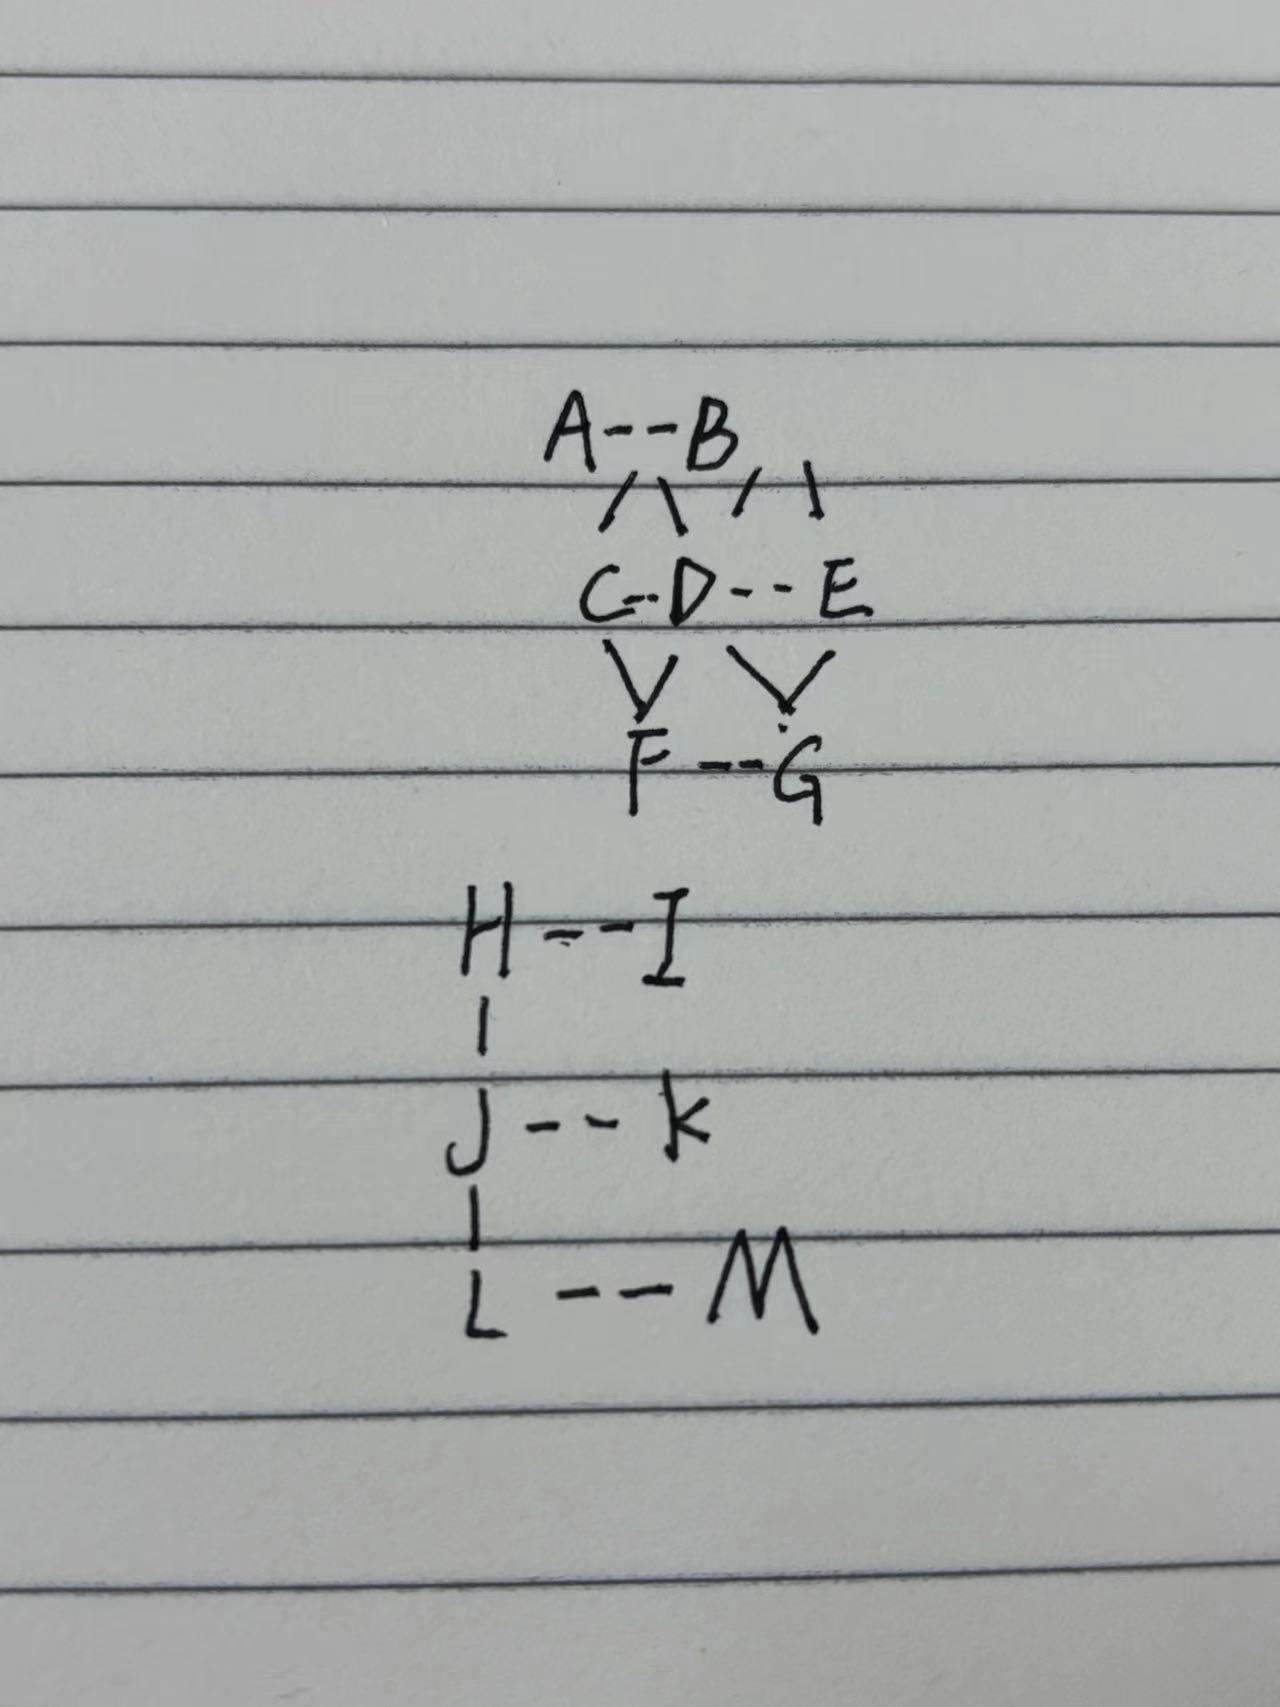 A--B
/ \ / \
C--D--E
\/ \/
F--G
H--I
|
J--K
|
L--M